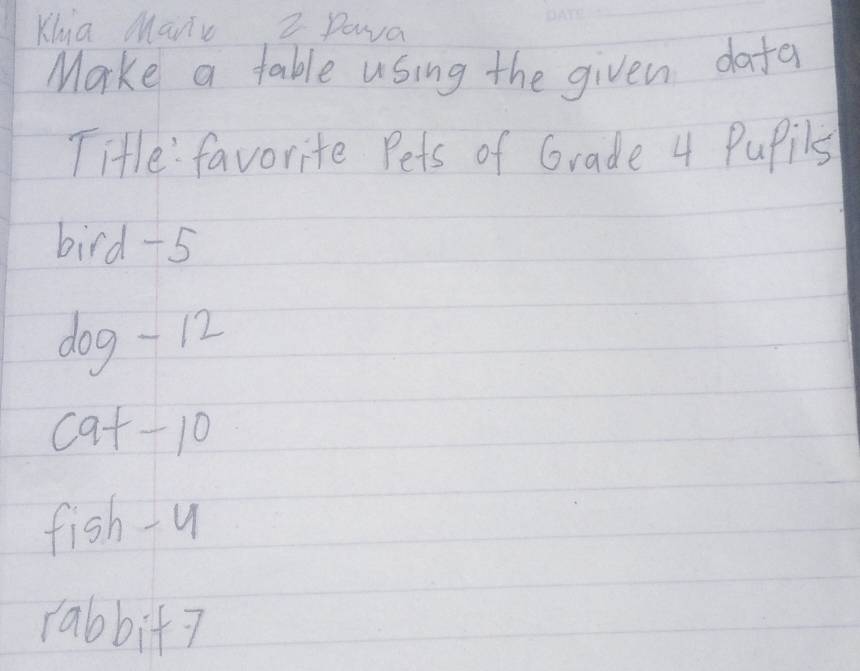 Khia Marie 2 Dava
DATE
Make a table using the given data
Title: favorite Pets of Grade 4 Pupils
bird - 5
dog - 12
cat - 10
fish - 4
rabbit 7